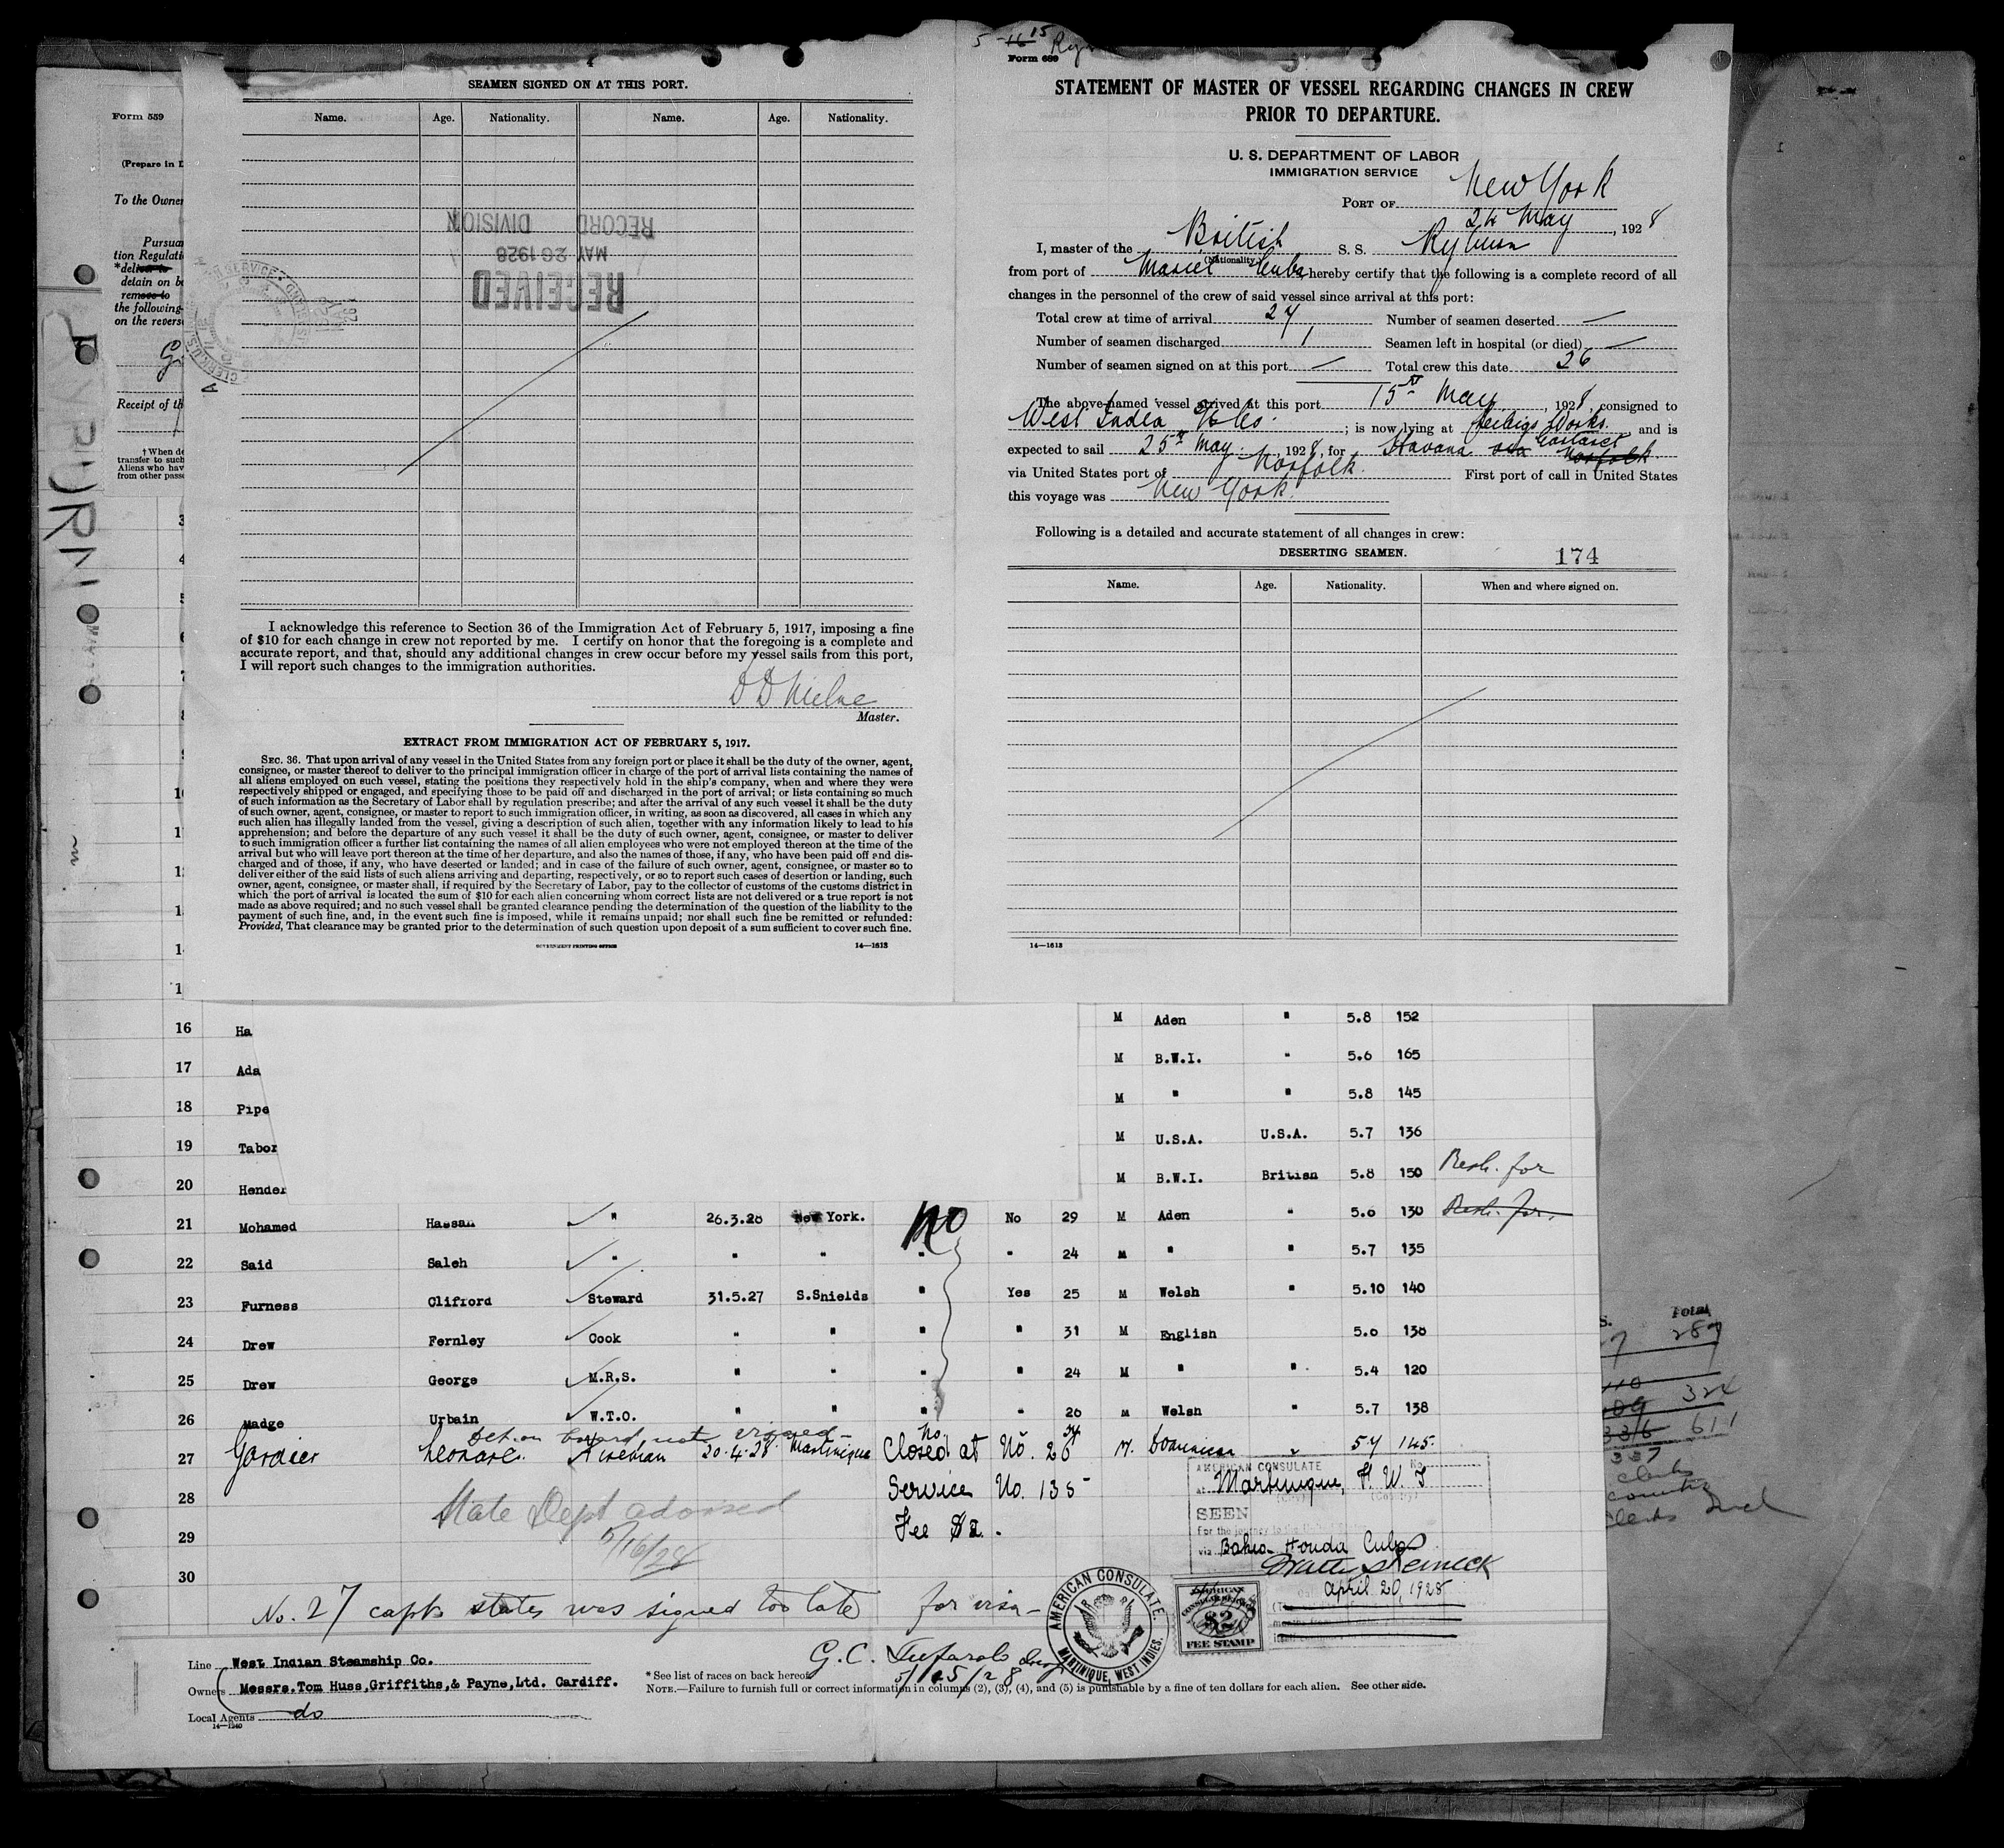 SEAMEN SIGNED ON AT THIS PORT.
Name. Age. Nationality. Name. Age. Nationality.
RECEIVED
MAY 26 1928
RECORD DIVISION
I acknowledge this reference to Section 36 of the Immigration Act of February 5, 1917, imposing a fine
of $10 for each change in crew not reported by me. I certify on honor that the foregoing is a complete and
accurate report, and that, should any additional changes in crew occur before my vessel sails from this port,
I will report such changes to the immigration authorities.
D D Milne
Master.
EXTRACT FROM IMMIGRATION ACT OF FEBRUARY 5, 1917.
SEC. 36. That upon arrival of any vessel in the United States from any foreign port or place it shall be the duty of the owner, agent,
consignee, or master thereof to deliver to the principal immigration officer in charge of the port of arrival lists containing the names of
all aliens employed on such vessel, stating the positions they respectively hold in the ship's company, when and where they were
respectively shipped or engaged, and specifying those to be paid off and discharged in the port of arrival; or lists containing so much
of such information as the Secretary of Labor shall by regulation prescribe; and after the arrival of any such vessel it shall be the duty
of such owner, agent, consignee, or master to report to such immigration officer, in writing, as soon as discovered, all cases in which any
such alien has illegally landed from the vessel, giving a description of such alien, together with any information likely to lead to his
apprehension; and before the departure of any such vessel it shall be the duty of such owner, agent, consignee, or master to deliver
to such immigration officer a further list containing the names of all alien employees who were not employed thereon at the time of the
arrival but who will leave port thereon at the time of her departure, and also the names of those, if any, who have been paid off and dis-
charged and of those, if any, who have deserted or landed; and in case of the failure of such owner, agent, consignee, or master so to
deliver either of the said lists of such aliens arriving and departing, respectively, or so to report such cases of desertion or landing, such
owner, agent, consignee, or master shall, if required by the Secretary of Labor, pay to the collector of customs of the customs district in
which the port of arrival is located the sum of $10 for each alien concerning whom correct lists are not delivered or a true report is not
made as above required; and no such vessel shall be granted clearance pending the determination of the question of the liability to the
payment of such fine, and, in the event such fine is imposed, while it remains unpaid; nor shall such fine be remitted or refunded:
Provided, That clearance may be granted prior to the determination of such question upon deposit of a sum sufficient to cover such fine.
GOVERNMENT PRINTING OFFICE 14—1613
Form 689
STATEMENT OF MASTER OF VESSEL REGARDING CHANGES IN CREW
PRIOR TO DEPARTURE.
U. S. DEPARTMENT OF LABOR
IMMIGRATION SERVICE
PORT OF New York
24 May, 1928
I, master of the British S. S.
(Nationality)
from port of Mariel Cuba hereby certify that the following is a complete record of all
changes in the personnel of the crew of said vessel since arrival at this port:
Total crew at time of arrival 27 Number of seamen deserted —
Number of seamen discharged 1 Seamen left in hospital (or died) —
Number of seamen signed on at this port — Total crew this date 26
The above-named vessel arrived at this port 15th May, 1928, consigned to
West India S/S Co. ; is now lying at and is
expected to sail 25th May, 1928, for Havana via Carteret Norfolk
via United States port of Norfolk. First port of call in United States
this voyage was New York.
Following is a detailed and accurate statement of all changes in crew:
DESERTING SEAMEN. 174
Name. Age. Nationality. When and where signed on.
14—1613
Form 559
(Prepare in
To the Owner
Pursua
tion Regulati
detain on b
the following
on the revers
Receipt of th
† When de
transfer to such
Aliens who hav
from other passe
16 Ha M Aden " 5.8 152
17 Ada M B.W.I. " 5.6 165
18 Pipe M " " 5.8 145
19 Tabor M U.S.A. U.S.A. 5.7 136
20 Hender M B.W.I. British 5.8 150
21 Mohamed Hassan " 26.3.28 New York. No No 29 M Aden " 5.6 130
22 Said Saleh " " " " " 24 M " " 5.7 135
23 Furness Clifford Steward 31.5.27 S.Shields " Yes 25 M Welsh " 5.10 140
24 Drew Fernley Cook " " " " 31 M English 5.6 138
25 Drew George M.R.S. " " " " 24 M " " 5.4 120
26 Madge Urbain W.T.O. " " " " 26 M Welsh " 5.7 138
Det. on board not visaed — No
27 20.4.28 Martinique Closed at No. 26 M. Dominica " 57 145.
28 Service No. 135
29 Fee $2.
30
State Dept advised
5/16/28
AMERICAN CONSULATE
at Martinique, F. W. I
SEEN
For the journey to the United States
via Bahia Honda Cuba
April 20, 1928
No. 27 capt. states was signed too late for visa —
AMERICAN CONSULATE. MARTINIQUE, WEST INDIES.
AMERICAN CONSULAR SERVICE $2 FEE STAMP
5/15/28
Line West Indian Steamship Co.
Owners Messrs.Tom Huss,Griffiths,& Payne,Ltd. Cardiff.
Local Agents do
14—1240
* See list of races on back hereof.
NOTE.—Failure to furnish full or correct information in columns (2), (3), (4), and (5) is punishable by a fine of ten dollars for each alien. See other side.
Total
287
324
611
337